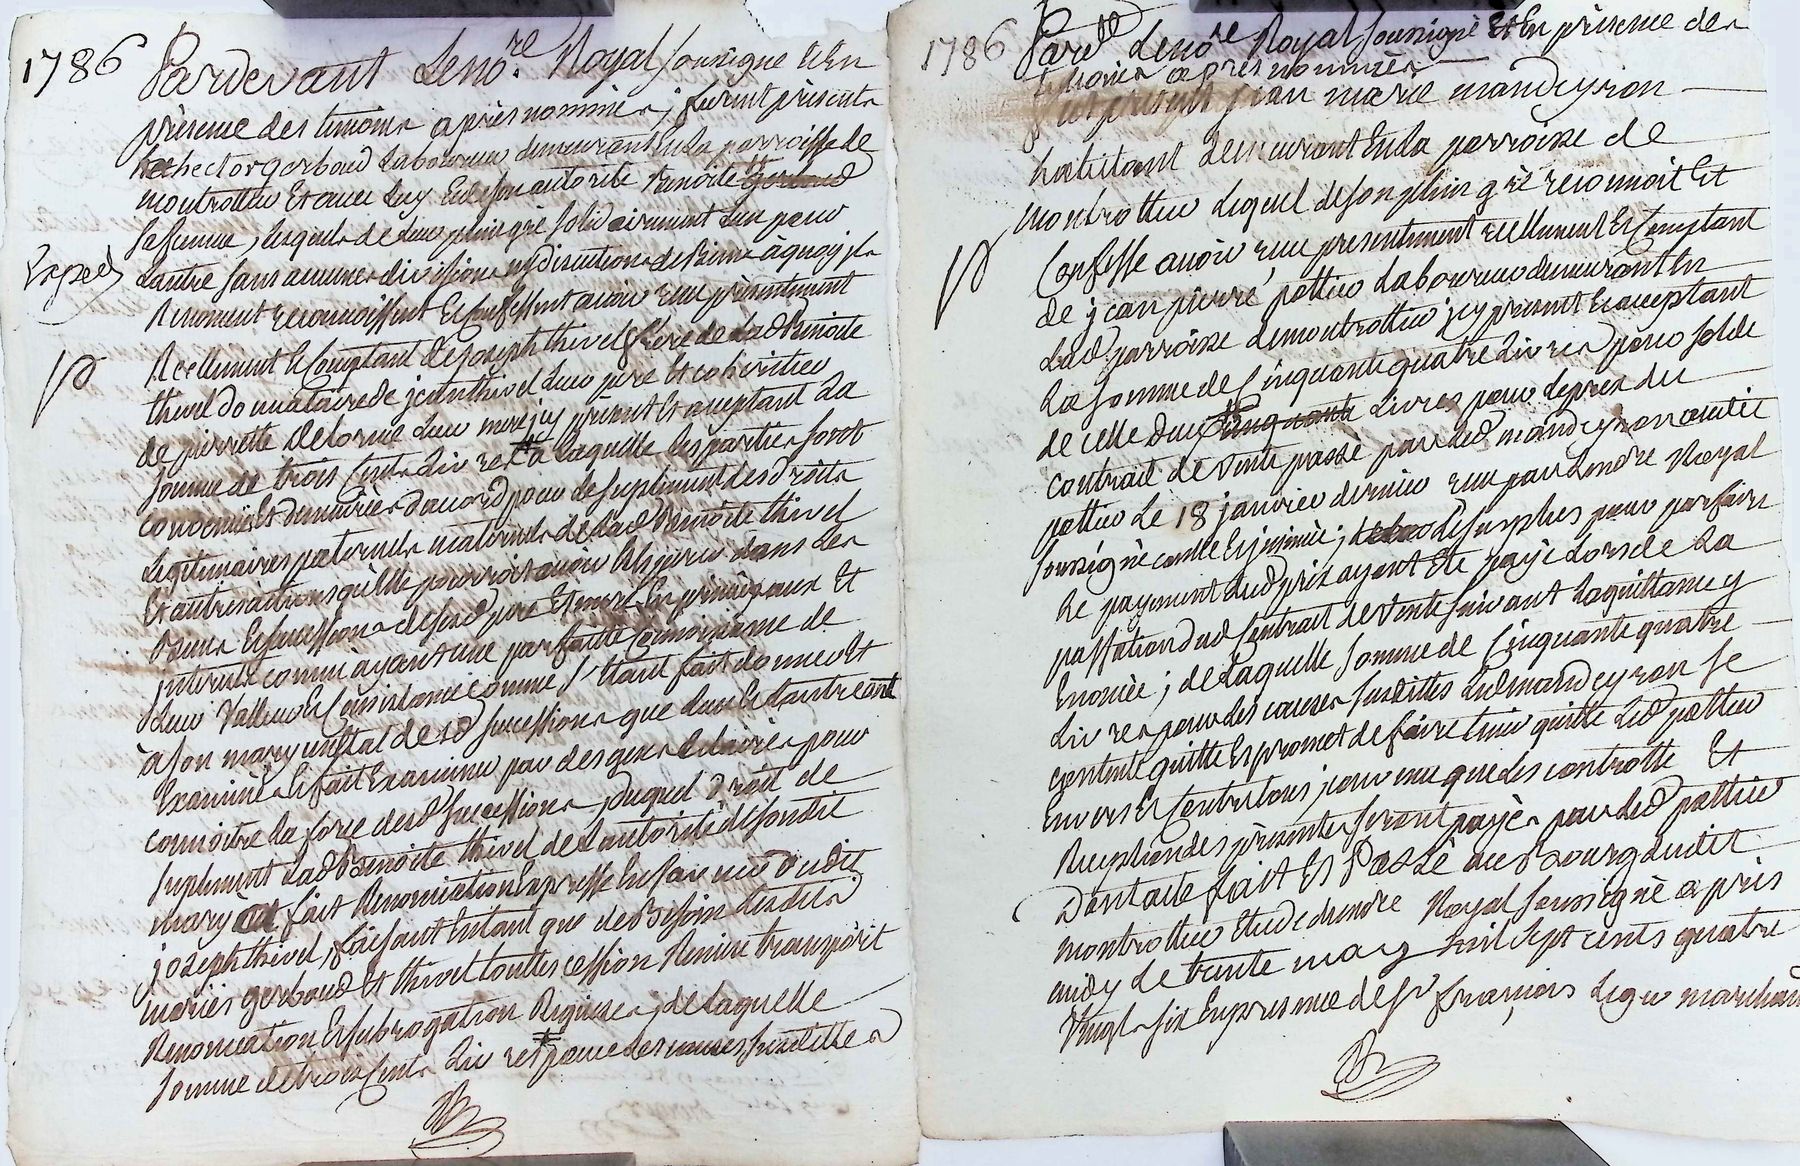 1786
Pardevant Le no.re Royal soussigné et En
présence des temoins après nommés, furent présents
hector gerboud Laboureur demeurant En la parroisse de
montrottier Et avec Luy Et de son autorité Benoite gerboud
sa femme, lesquels de leur plein gré solidairement L'un pour
Exped
L'autre sans aucune division ny discution de Biens à quoy ils
Renoncent reconnoissent Et confessent avoir reçu présentement
Reellement Et Comptant de joseph thivel frère de Lad Benoite
thivel donnataire de jean thivel Leur père Et cohéritier
de pierrette Delorme Leur mère, icy présent Et acceptant La
somme de trois Cents Livres à Laquelle les parties sont
convenües Et demeurées d'accord pour le suplement des droits
Légitimaires paternels maternels de Lad Benoite thivel
Et autres actions qu'elle pourroit avoir Et Espérer dans Les
Biens Et successions de sesd père Et mère En principaux Et
interests comme ayant une parfaite Connoissance de
Leur valleur Et Consistance comme s'étant fait donner Et
à son mary un Etat desd successions que L'un Et L'autre ont
Examinés Et fait Examiner par des gens Eclairés pour
connoitre La force desd successions, duquel droit de
suplement Lad Benoite thivel de L'autorité de sondit
mary a fait Renonciation Expresse En faveur dudit
joseph thivel, faisant Entant que de Besoin Lesdits
mariés gerboud Et thivel touttes cession Remise transport
Renonciation Et subrogation Requises, de Laquelle
somme de trois Cents Livres pour les causes susdittes
1786
Pard.t Le no.re Royal soussigné Et En présence des
témoins après nommés
fut présent jean marie mandeyron
habitant demeurant En La parroisse de
montrottier Lequel de son plein gré reconnoit Et
Confesse avoir reçu présentement réellement Et Comptant
de jean pierre pottier Laboureur demeurant En
Lad parroisse de montrottier icy présent Et acceptant
La somme de Cinquante quatre Livres pour solde
de celle de cinquante Livres pour le prix du
contrait de vente passé par Led mandeyron audit
pottier Le 18 janvier dernier reçu par Le no.re Royal
soussigné controllé Et insinué; Le surplus pour parfaire
Le payement dud prix ayant Eté payé Lors de La
passation dud Contrait de vente suivant La quittance y
Enoncée; de Laquelle somme de Cinquante quatre
Livres pour les causes susdittes Led mandeyron se
contente quitte Et promet de faire tenir quitte Led pottier
Envers Et Contre tous, pour ceux que Les controlle Et
Receptions des présentes seront payés par Led pottier
Dont acte fait Et Passé au Bourg dudit
montrottier Etude du no.re Royal soussigné après
midy Le trente may mil sept cents quatre
Vingt six En présence de sr françois Liger marchand